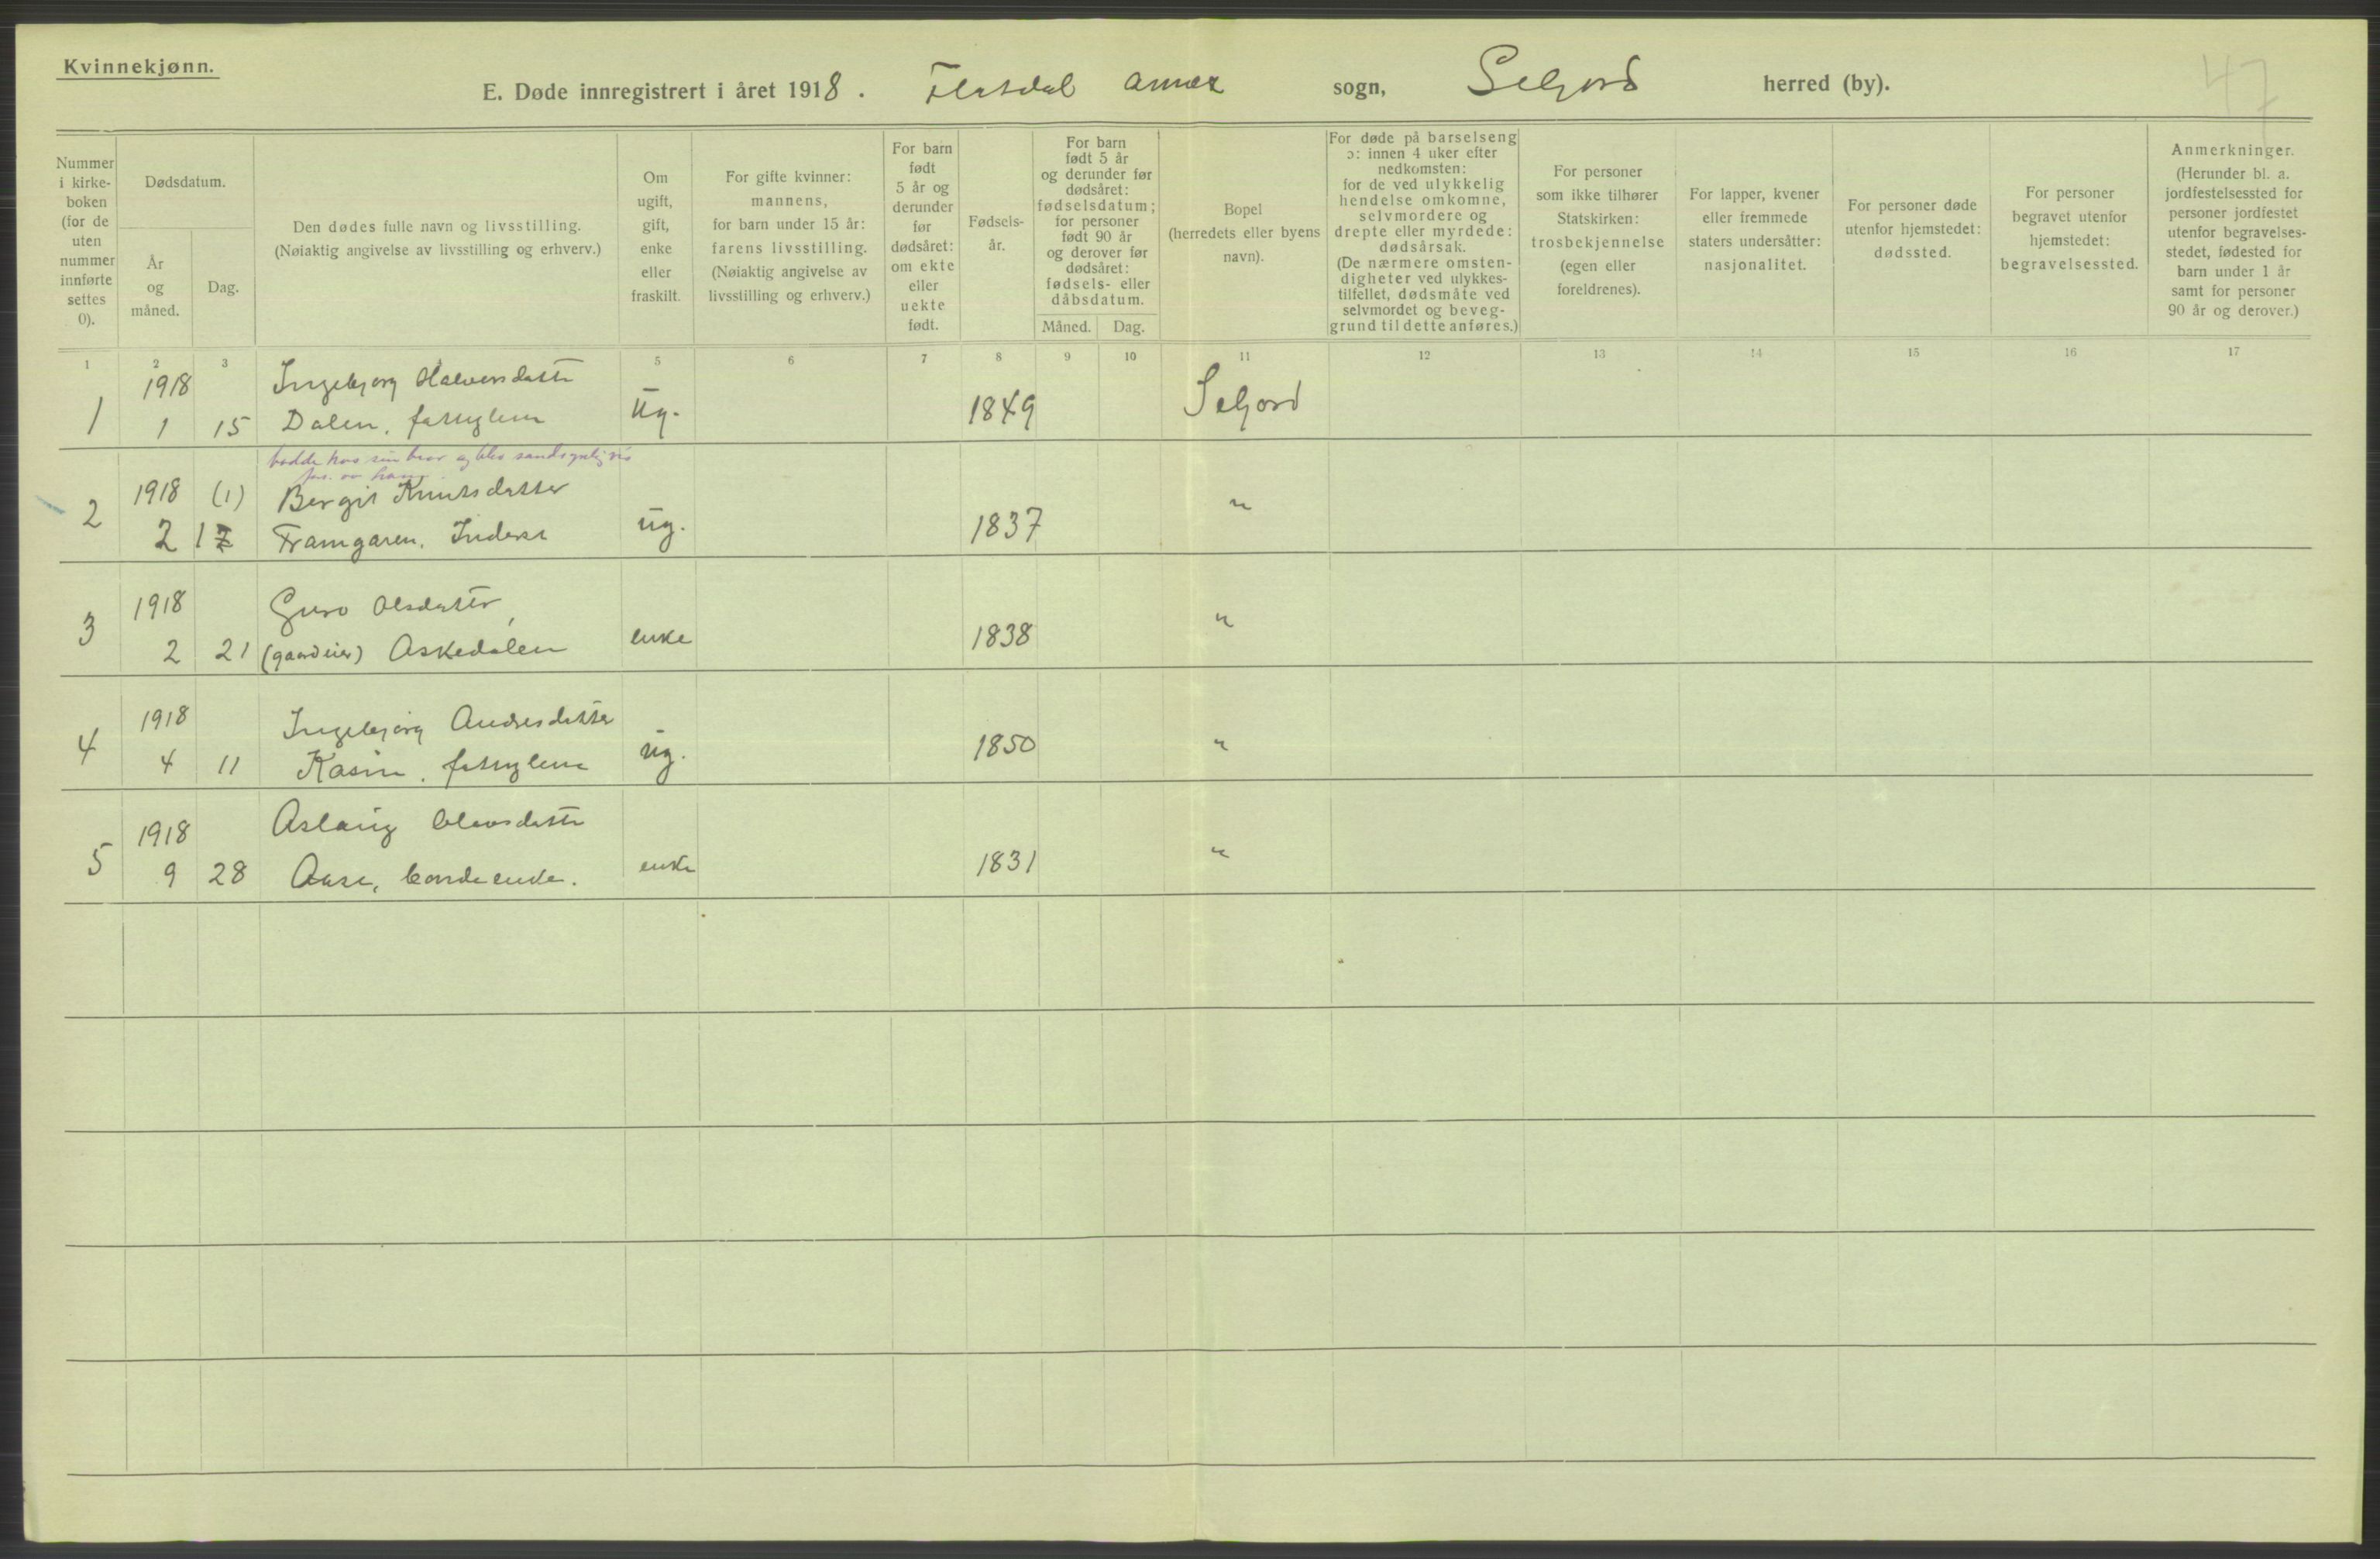 Kvinnekjønn.
47
E. Døde innregistrert i året 1918. Flatdal annex sogn, Seljord herred (by).
Nummer i kirke-boken (for de uten nummer innførte settes 0).
Dødsdatum.
År og måned.
Dag.
Den dødes fulle navn og livsstilling.
(Nøiaktig angivelse av livsstilling og erhverv.)
Om ugift, gift, enke eller fraskilt.
For gifte kvinner: mannens, for barn under 15 år: farens livsstilling. (Nøiaktig angivelse av livsstilling og erhverv.)
For barn født 5 år og derunder før dødsåret: om ekte eller uekte født.
Fødsels-år.
For barn født 5 år og derunder før dødsåret: fødselsdatum; for personer født 90 år og derover før dødsåret: fødsels- eller dåbsdatum.
Måned. Dag.
Bopel (herredets eller byens navn).
For døde på barselseng ɔ: innen 4 uker efter nedkomsten: for de ved ulykkelig hendelse omkomne, selvmordere og drepte eller myrdede: dødsårsak. (De nærmere omsten-digheter ved ulykkes-tilfellet, dødsmåte ved selvmordet og beveg-grund til dette anføres.)
For personer som ikke tilhører Statskirken: trosbekjennelse (egen eller foreldrenes).
For lapper, kvener eller fremmede staters undersåtter: nasjonalitet.
For personer døde utenfor hjemstedet: dødssted.
For personer begravet utenfor hjemstedet: begravelsessted.
Anmerkninger. (Herunder bl. a. jordfestelsessted for personer jordfestet utenfor begravelses-stedet, fødested for barn under 1 år samt for personer 90 år og derover.)
1 2 3 5 6 7 8 9 10 11 12 13 14 15 16 17
1918 Ingebjorg Halvorsdatter
1 1 15 Dalen, fattiglem ug. 1849 Seljord
bodde hos sin bror og blev sandsynligvis
fors. av ham.
1918 (1) Bergit Knutsdatter
2 2 17 Framgaren, Inderst ug. 1837 "
1918 Guro Olsdatter,
3 2 21 (gaardeier) Askedalen enke 1838 "
1918 Ingebjorg Andresdatter
4 4 11 Kasin, fattiglem ug. 1850 "
1918 Aslaug Olavsdatter
5 9 28 Aase, bondeenke. enke 1831 "